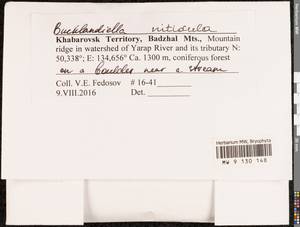 Bucklandiella nitidula
Khabarovsk Territory, Badzhal Mts., Mountain
ridge in watershed of Yarap River and its tributary N:
50,338°; E: 134,656° Ca. 1300 m, coniferous forest
on a boulder near a stream
Coll. V.E. Fedosov # 16-41
9.VIII.2016 Det.
Herbarium MW, Bryophyta
MW 9 130 148